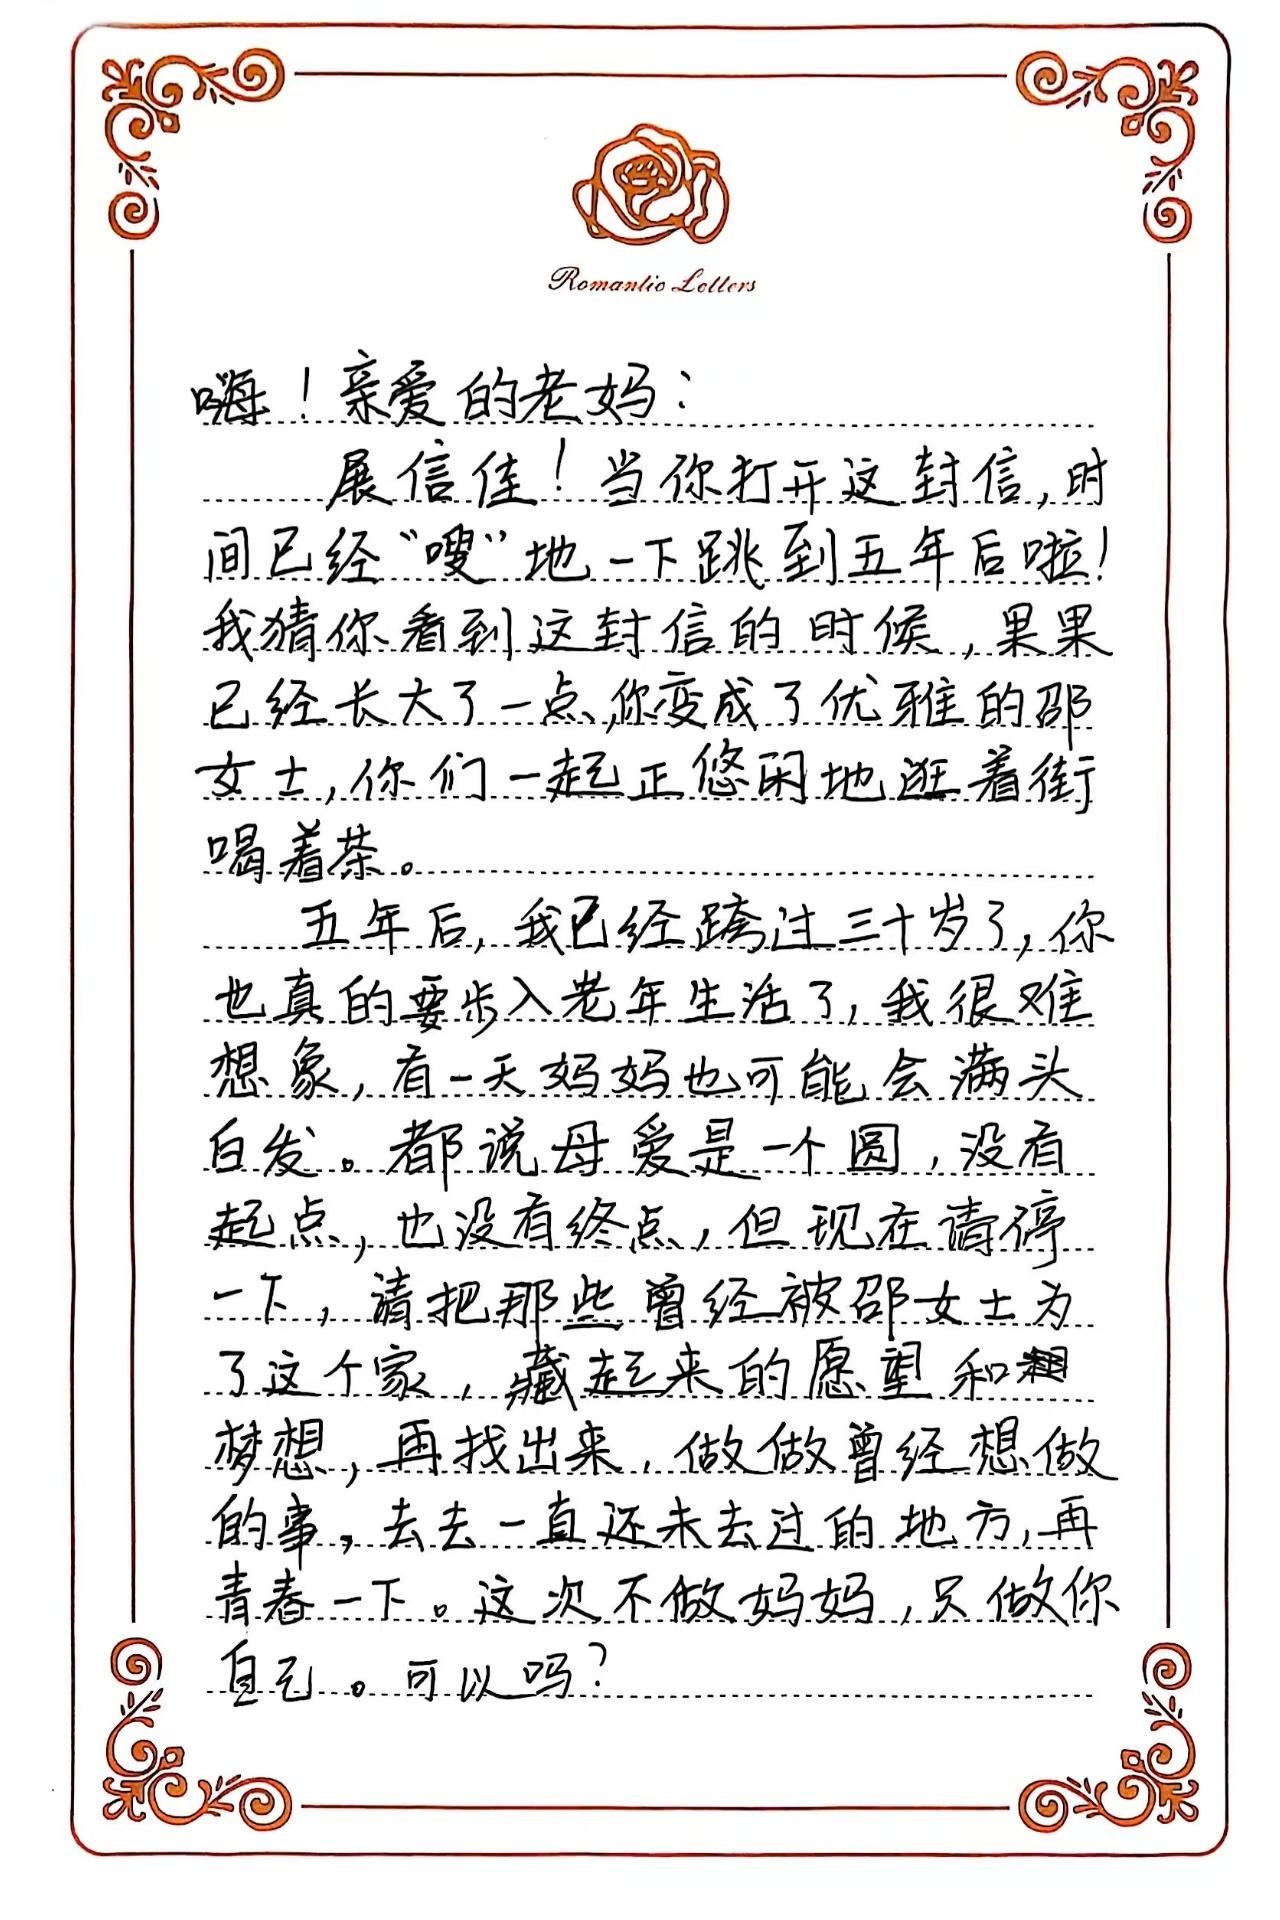 Romantic Letters
嗨！亲爱的老妈：
展信佳！当你打开这封信，时
间已经“嗖”地一下跳到五年后啦！
我猜你看到这封信的时候，果果
已经长大了一点，你变成了优雅的邵
女士，你们一起正悠闲地逛着街
喝着茶。
五年后，我已经跨过三十岁了，你
也真的要步入老年生活了，我很难
想象，有一天妈妈也可能会满头
白发。都说母爱是一个圆，没有
起点，也没有终点，但现在请停
一下，请把那些曾经被邵女士为
了这个家，藏起来的愿望和
梦想，再找出来，做做曾经想做
的事，去去一直还未去过的地方，再
青春一下。这次不做妈妈，只做你
自己。可以吗？